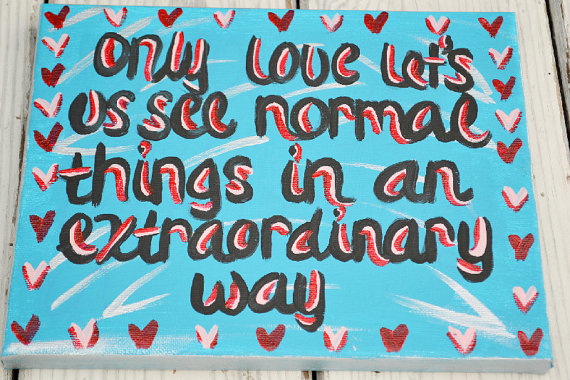 only love let's
us see normal
things in an
extraordinary
way